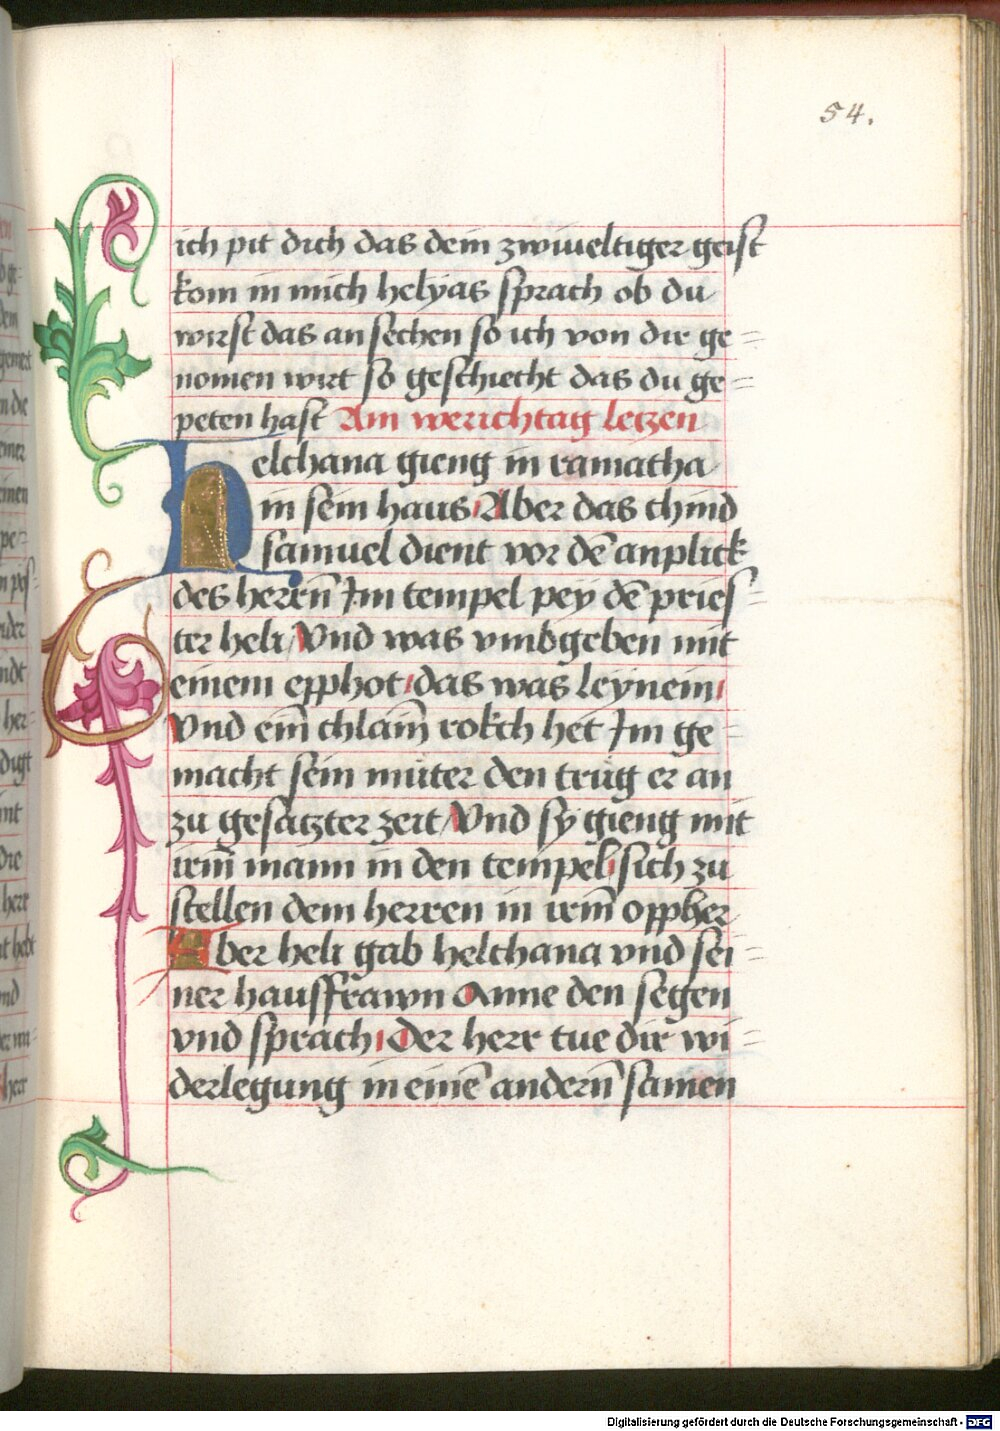 54.
ich pit dich das dein zwiueltiger geist
kom in mich helyas sprach ob du
wirst das an sechen so ich von dir ge=
nomen wirt so geschiecht das du ge=
peten hast Am werichtag leczen
Helchana gieng in ramatha
in sein haus Aber das chind
samuel dient vor dē anplick
des herrn̄ Im tempel pey dē pries=
ter heli Vnd was vmbgeben mit
einem epphot das was leynein
Vnd ein̄ chlain̄ rokch het Im ge=
macht sein mueter den trueg er an
zu gesaczter zeit Vnd sy gieng mit
irem̄ mann in den tempel sich zu
stellen dem herren in irem̄ oppher
Aber heli gab helchana vnd sei=
ner hausffrawn Anne den segen
vnd sprach Der herr tue dir wi=
derlegung in einē andern̄ samen
Digitalisierung gefördert durch die Deutsche Forschungsgemeinschaft - DFG